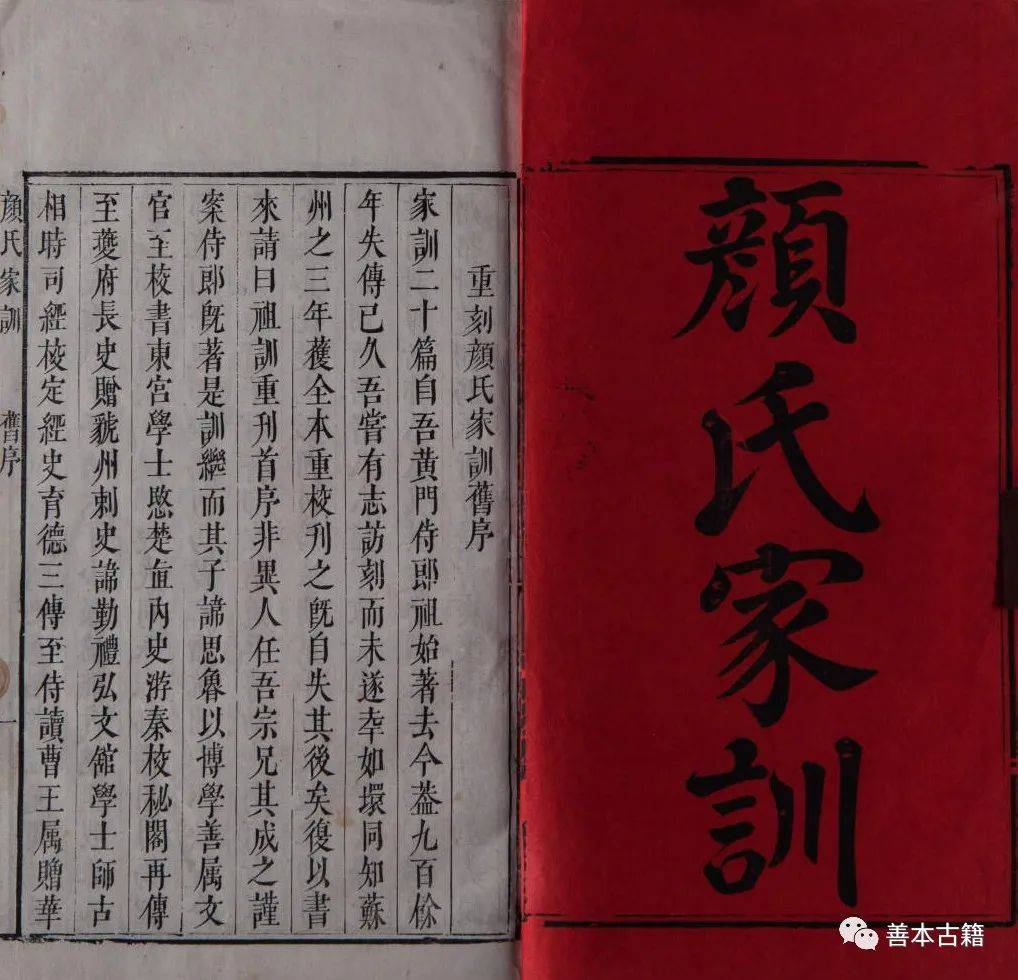 顔氏家訓
重刻顔氏家訓舊序
家訓二十篇自吾黄門侍郎祖始著去今葢九百餘
年失傳已久吾嘗有志訪刻而未遂幸如環同知蘇
州之三年蒦全本重校刊之旣自失其後矣復以書
來請曰祖訓重刊首序非異人任吾宗兄其成之謹
案侍郎旣著是訓繼而其子諦思魯以博學善属文
官至校書東宮學士愍楚直內史游秦校秘閣再傳
至䕫府長史贈虢州刺史諱勤禮弘文舘學士師古
相時司經校定經史育德三傳至侍讀曹王属贈華
顔氏家訓
舊序
一
善本古籍